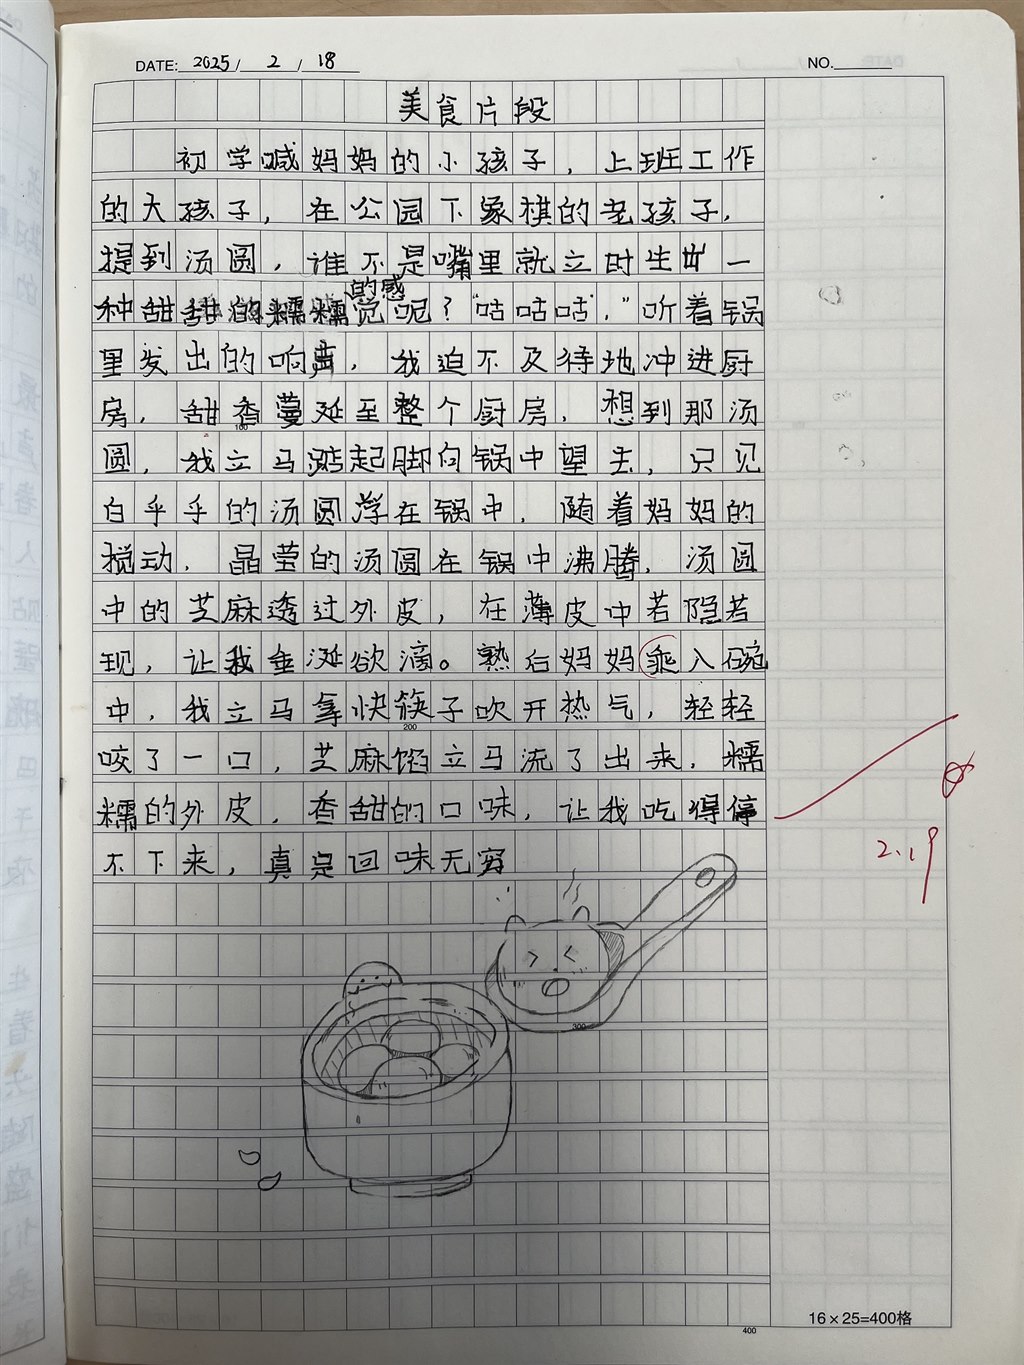 DATE: 2025 / 2 / 18
NO.
美食片段
初学喊妈妈的小孩子，上班工作
的大孩子，在公园下象棋的老孩子，
提到汤圆，谁不是嘴里就立时生出一
种甜甜的糯糯的感觉呢？“咕咕咕，”听着锅
里发出的响声，我迫不及待地冲进厨
房，甜香蔓延至整个厨房，想到那汤
100
圆，我立马踮起脚向锅中望去，只见
白乎乎的汤圆浮在锅中，随着妈妈的
搅动，晶莹的汤圆在锅中沸腾，汤圆
中的芝麻透过外皮，在薄皮中若隐若
现，让我垂涎欲滴。熟后妈妈乘入碗
中，我立马拿快筷子吹开热气，轻轻
200
咬了一口，芝麻馅立马流了出来，糯
糯的外皮，香甜的口味，让我吃得停
不下来，真是回味无穷
2.19
300
16×25=400格
400